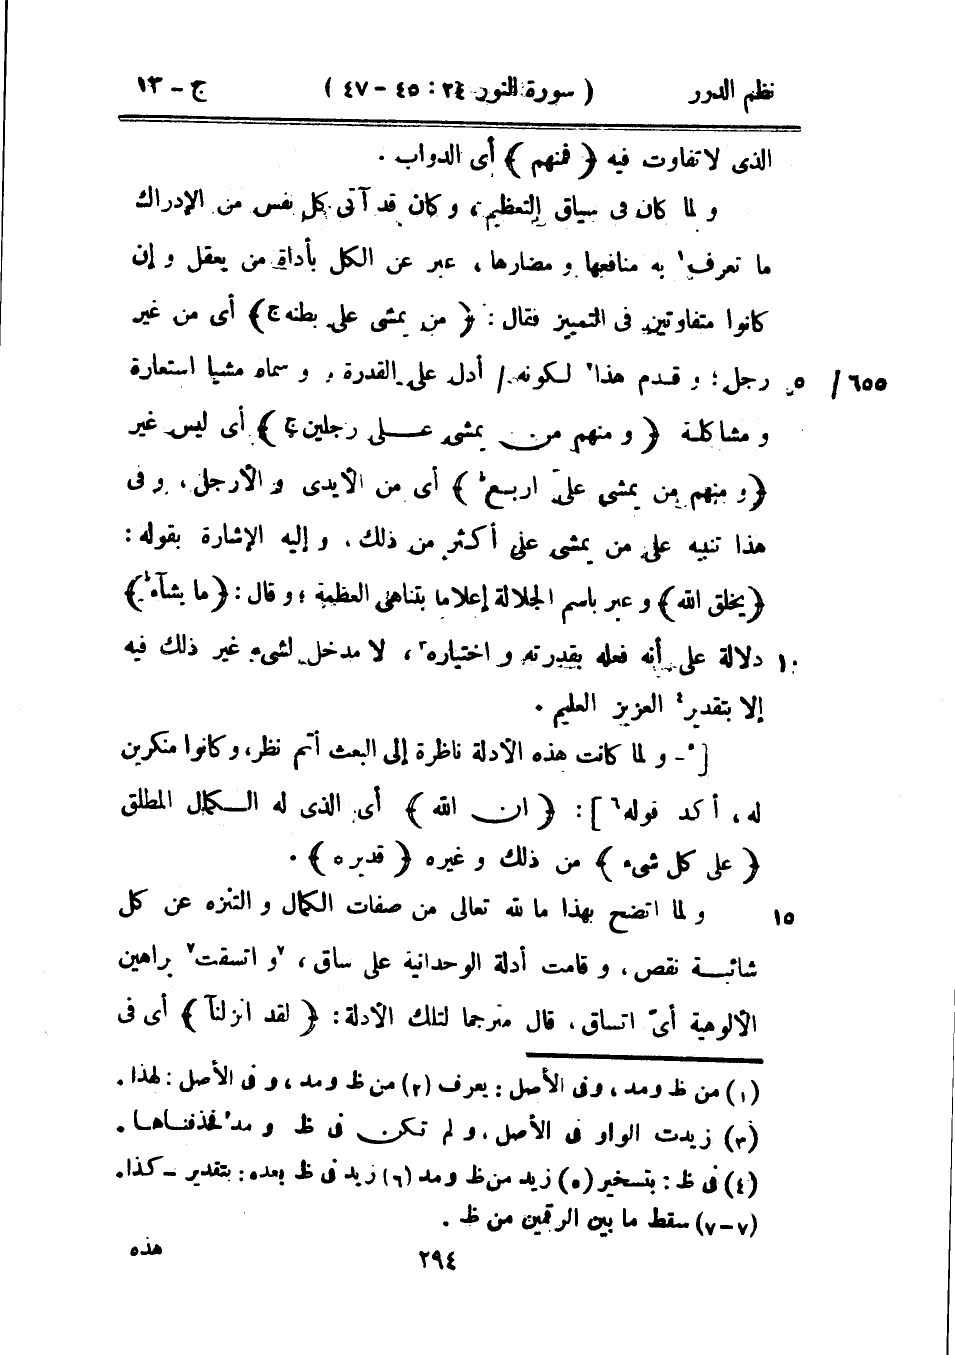 نظم الدرر ( سورة النور ٢٤ : ٤٥ – ٤٧ ) ج – ١٣
الذى لا تفاوت فيه ﴿ فمنهم ﴾ أى الدواب .
و لما كان فى سياق التعظيم ، و كان قد آتى كل نفس من الإدراك
ما تعرف١ به منافعها و مضارها ، عبر عن الكل بأداة من يعقل و إن
كانوا متفاوتين فى التمييز فقال : ﴿ من يمشى على بطنه ج ﴾ أى من غير
٦٥٥ / ٥ رجل ؛ و قدم هذا٢ لكونه / أدل على القدرة ، و سماه مشيا استعارة
و مشاكلة ﴿ و منهم من يمشى على رجلين ج ﴾ أى ليس غير
﴿ و منهم من يمشى على اربع ط ﴾ أى من الأيدى و الأرجل ، و فى
هذا تنبيه على من يمشى على أكثر من ذلك ، و إليه الإشارة بقوله :
﴿ يخلق الله ﴾ و عبر باسم الجلالة إعلاما بتناهى العظمة ؛ و قال : ﴿ ما يشآء ط ﴾
١٠ دلالة على أنه فعله بقدرته و اختياره٣ ، لا مدخل لشىء غير ذلك فيه
إلا بتقدير٤ العزيز العليم .
[٥- و لما كانت هذه الأدلة ناظرة إلى البعث أتم نظر ، و كانوا منكرين
له ، أكد قوله٦ ] : ﴿ ان الله ﴾ أى الذى له الكمال المطلق
﴿ على كل شىء ﴾ من ذلك و غيره ﴿ قدير ه ﴾ .
١٥ و لما اتضح بهذا ما لله تعالى من صفات الكمال و التنزه عن كل
شائبة نقص ، و قامت أدلة الوحدانية على ساق ، ٧و اتسقت٧ براهين
الألوهية أىّ اتساق ، قال مترجما لتلك الأدلة : ﴿ لقد انزلنآ ﴾ أى فى
(١) من ظ و مد ، و فى الأصل : يعرف (٢) من ظ و مد ، و فى الأصل : لهذا .
(٣) زيدت الواو فى الأصل ، و لم تكن فى ظ و مد فحذفناها .
(٤) فى ظ : بتسخير (٥) زيد من ظ و مد (٦) زيد فى ظ بعده : بتقدير – كذا .
(٧ – ٧) سقط ما بين الرقمين من ظ .
٢٩٤ هذه